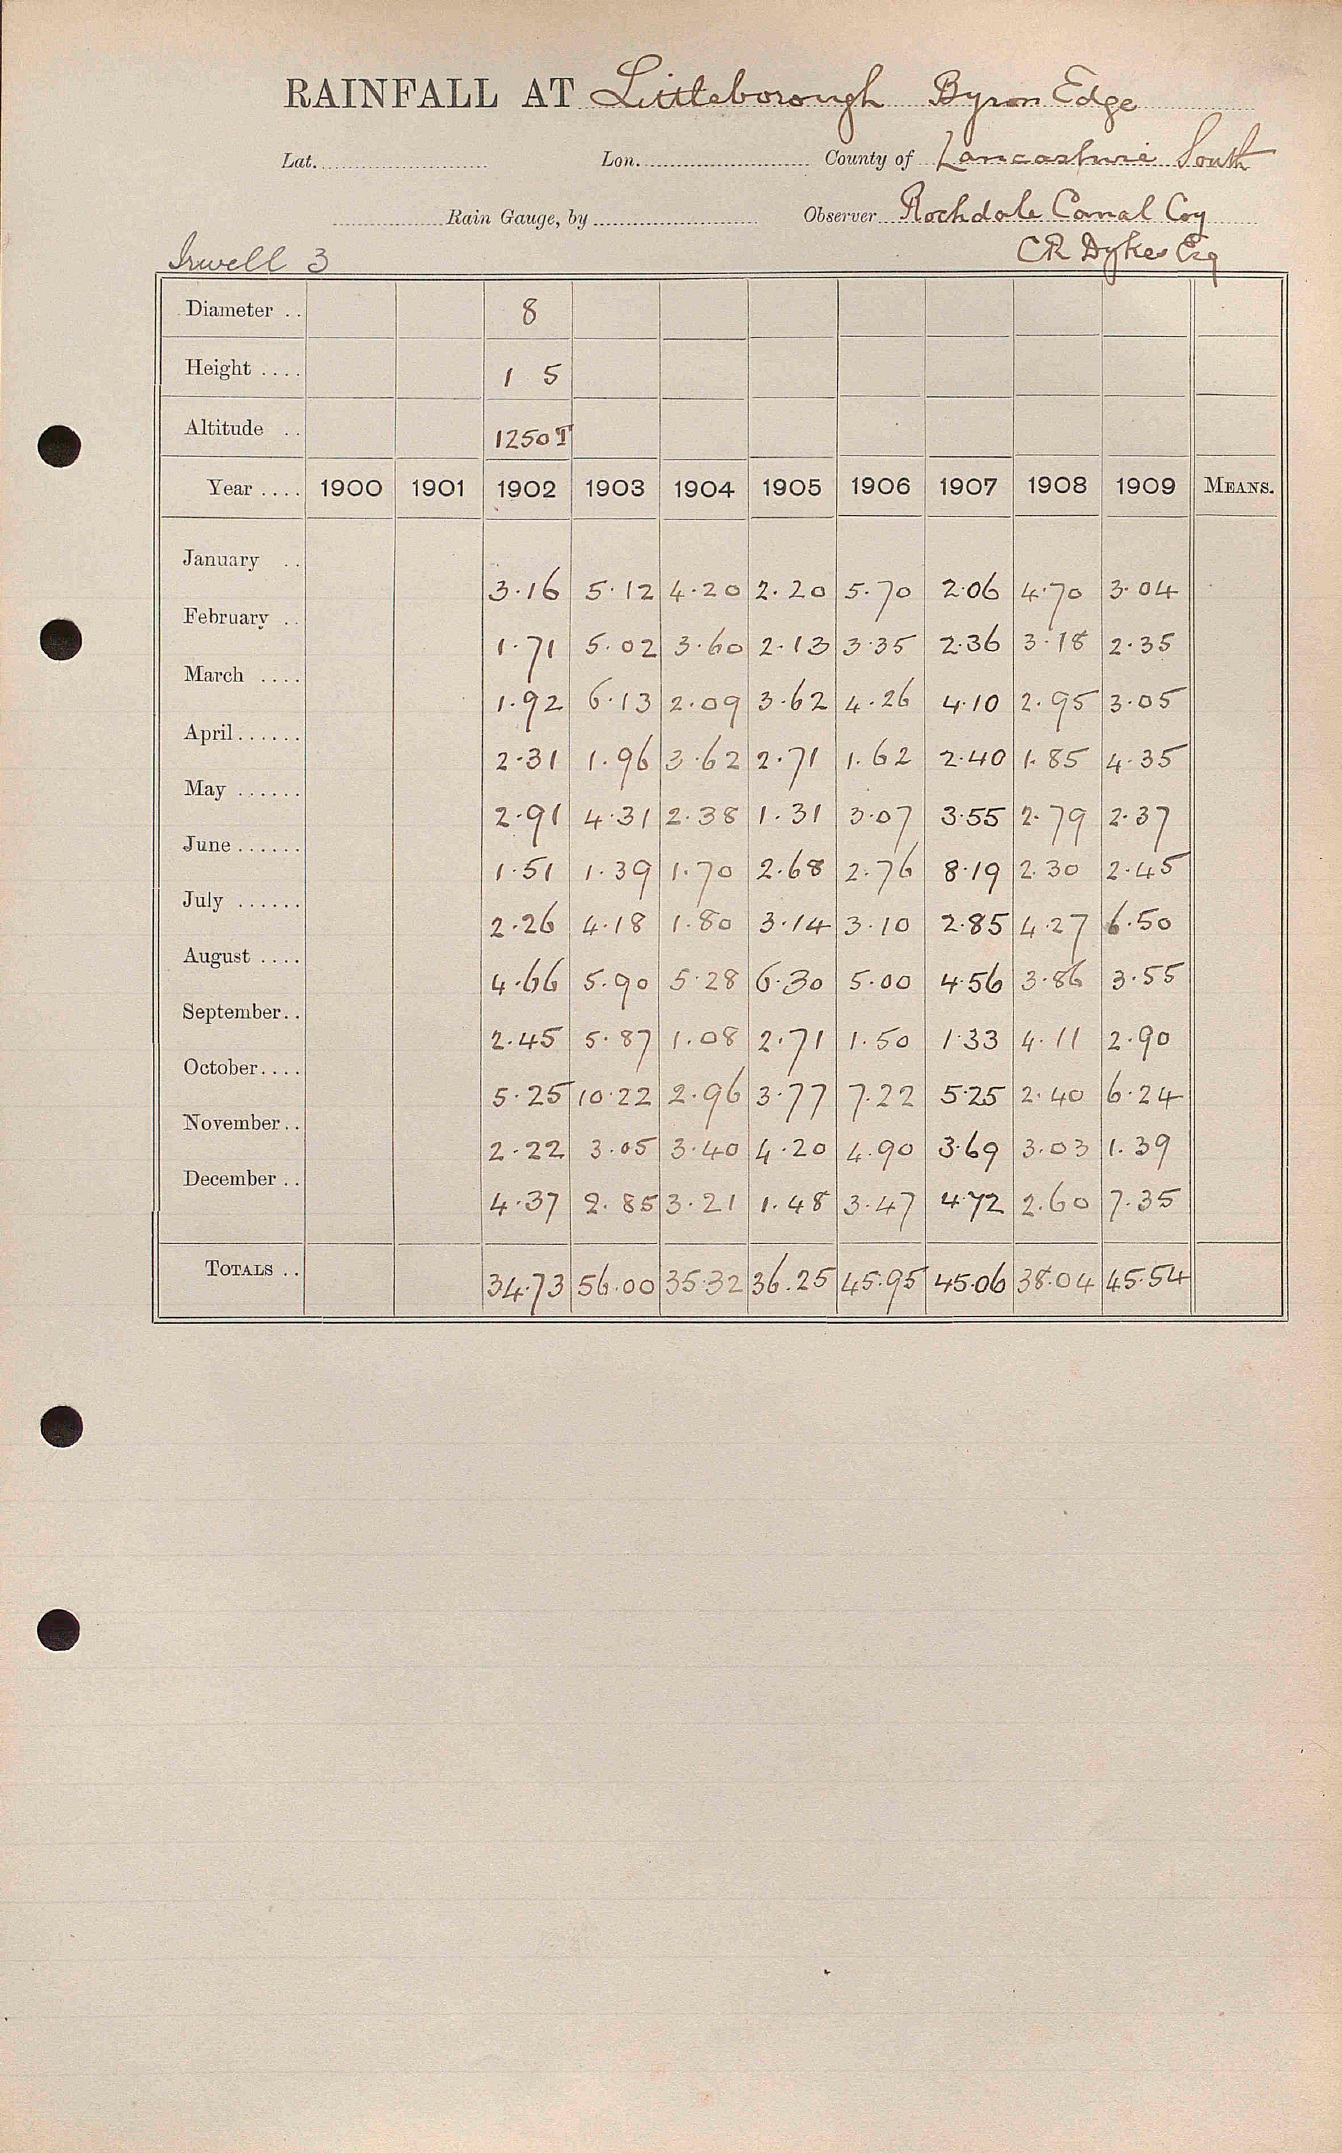 RAINFALL AT Littleborough Byron Edge
Lat. Lon. County of Lancashire South
Rain Gauge, by Observer Rochdale Canal Coy
Irwell 3 CR Dykes Esq
Diameter .. 8
Height .... 1 5
Altitude .. 1250T
Year .... 1900 1901 1902 1903 1904 1905 1906 1907 1908 1909 MEANS.
January .. 3.16 5.12 4.20 2.20 5.70 2.06 4.70 3.04
February .. 1.71 5.02 3.60 2.13 3.35 2.36 3.18 2.35
March .... 1.92 6.13 2.09 3.62 4.26 4.10 2.95 3.05
April...... 2.31 1.96 3.62 2.71 1.62 2.40 1.85 4.35
May ...... 2.91 4.31 2.38 1.31 3.07 3.55 2.79 2.37
June...... 1.51 1.39 1.70 2.68 2.76 8.19 2.30 2.45
July ...... 2.26 4.18 1.80 3.14 3.10 2.85 4.27 6.50
August .... 4.66 5.90 5.28 6.30 5.00 4.56 3.86 3.55
September.. 2.45 5.87 1.08 2.71 1.50 1.33 4.11 2.90
October.... 5.25 10.22 2.96 3.77 7.22 5.25 2.40 6.24
November.. 2.22 3.05 3.40 4.20 4.90 3.69 3.03 1.39
December .. 4.37 2.85 3.21 1.48 3.47 4.72 2.60 7.35
TOTALS .. 34.73 56.00 35.32 36.25 45.95 45.06 38.04 45.54